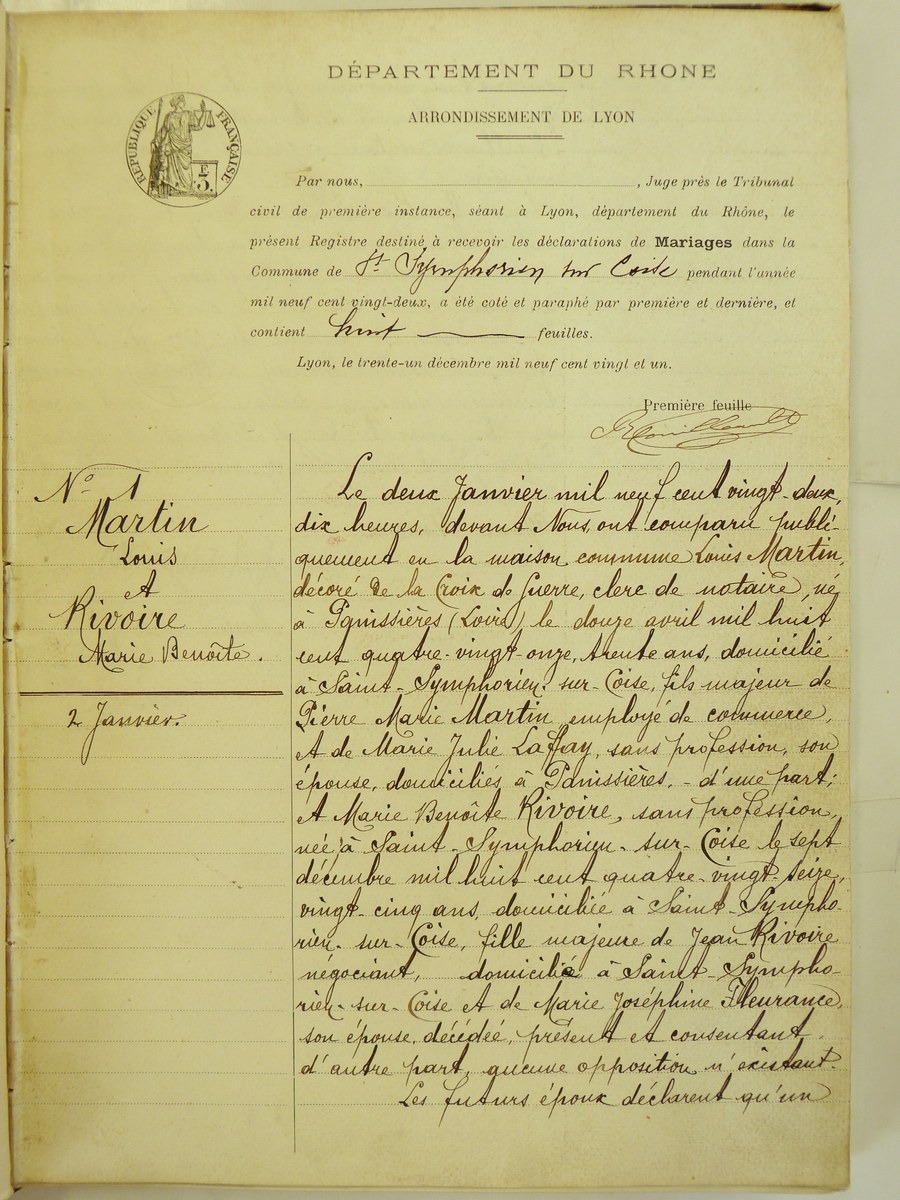 DÉPARTEMENT DU RHONE
ARRONDISSEMENT DE LYON
RÉPUBLIQUE FRANÇAISE
E
5.
Par nous, , Juge près le Tribunal
civil de première instance, séant à Lyon, département du Rhône, le
présent Registre destiné à recevoir les déclarations de Mariages dans la
Commune de St Symphorien sur Coise pendant l'année
mil neuf cent vingt-deux, a été coté et paraphé par première et dernière, et
contient huit feuilles.
Lyon, le trente-un décembre mil neuf cent vingt et un.
Première feuille
No 1
Martin
Louis
et
Rivoire
Marie Benoîte.
2 Janvier.
Le deux Janvier mil neuf cent vingt-deux,
dix heures, devant Nous, ont comparu publi-
quement en la maison commune Louis Martin,
décoré de la Croix de Guerre, clerc de notaire, né
à Panissières (Loire) le douze avril mil huit
cent quatre-vingt-onze, trente ans, domicilié
à Saint-Symphorien-sur-Coise, fils majeur de
Pierre Marie Martin employé de commerce,
et de Marie Julie Laffay, sans profession, son
épouse, domiciliés à Panissières, - d'une part;
et Marie Benoîte Rivoire, sans profession,
née à Saint-Symphorien-sur-Coise le sept
décembre mil huit cent quatre-vingt-seize,
vingt-cinq ans, domiciliée à Saint-Sympho-
rien-sur-Coise, fille majeure de Jean Rivoire
négociant, domicilié à Saint-Sympho-
rien-sur-Coise et de Marie Joséphine Fleurance,
son épouse, décédée, présent et consentant,
d'autre part, aucune opposition n'existant.
Les futurs époux déclarent qu'un